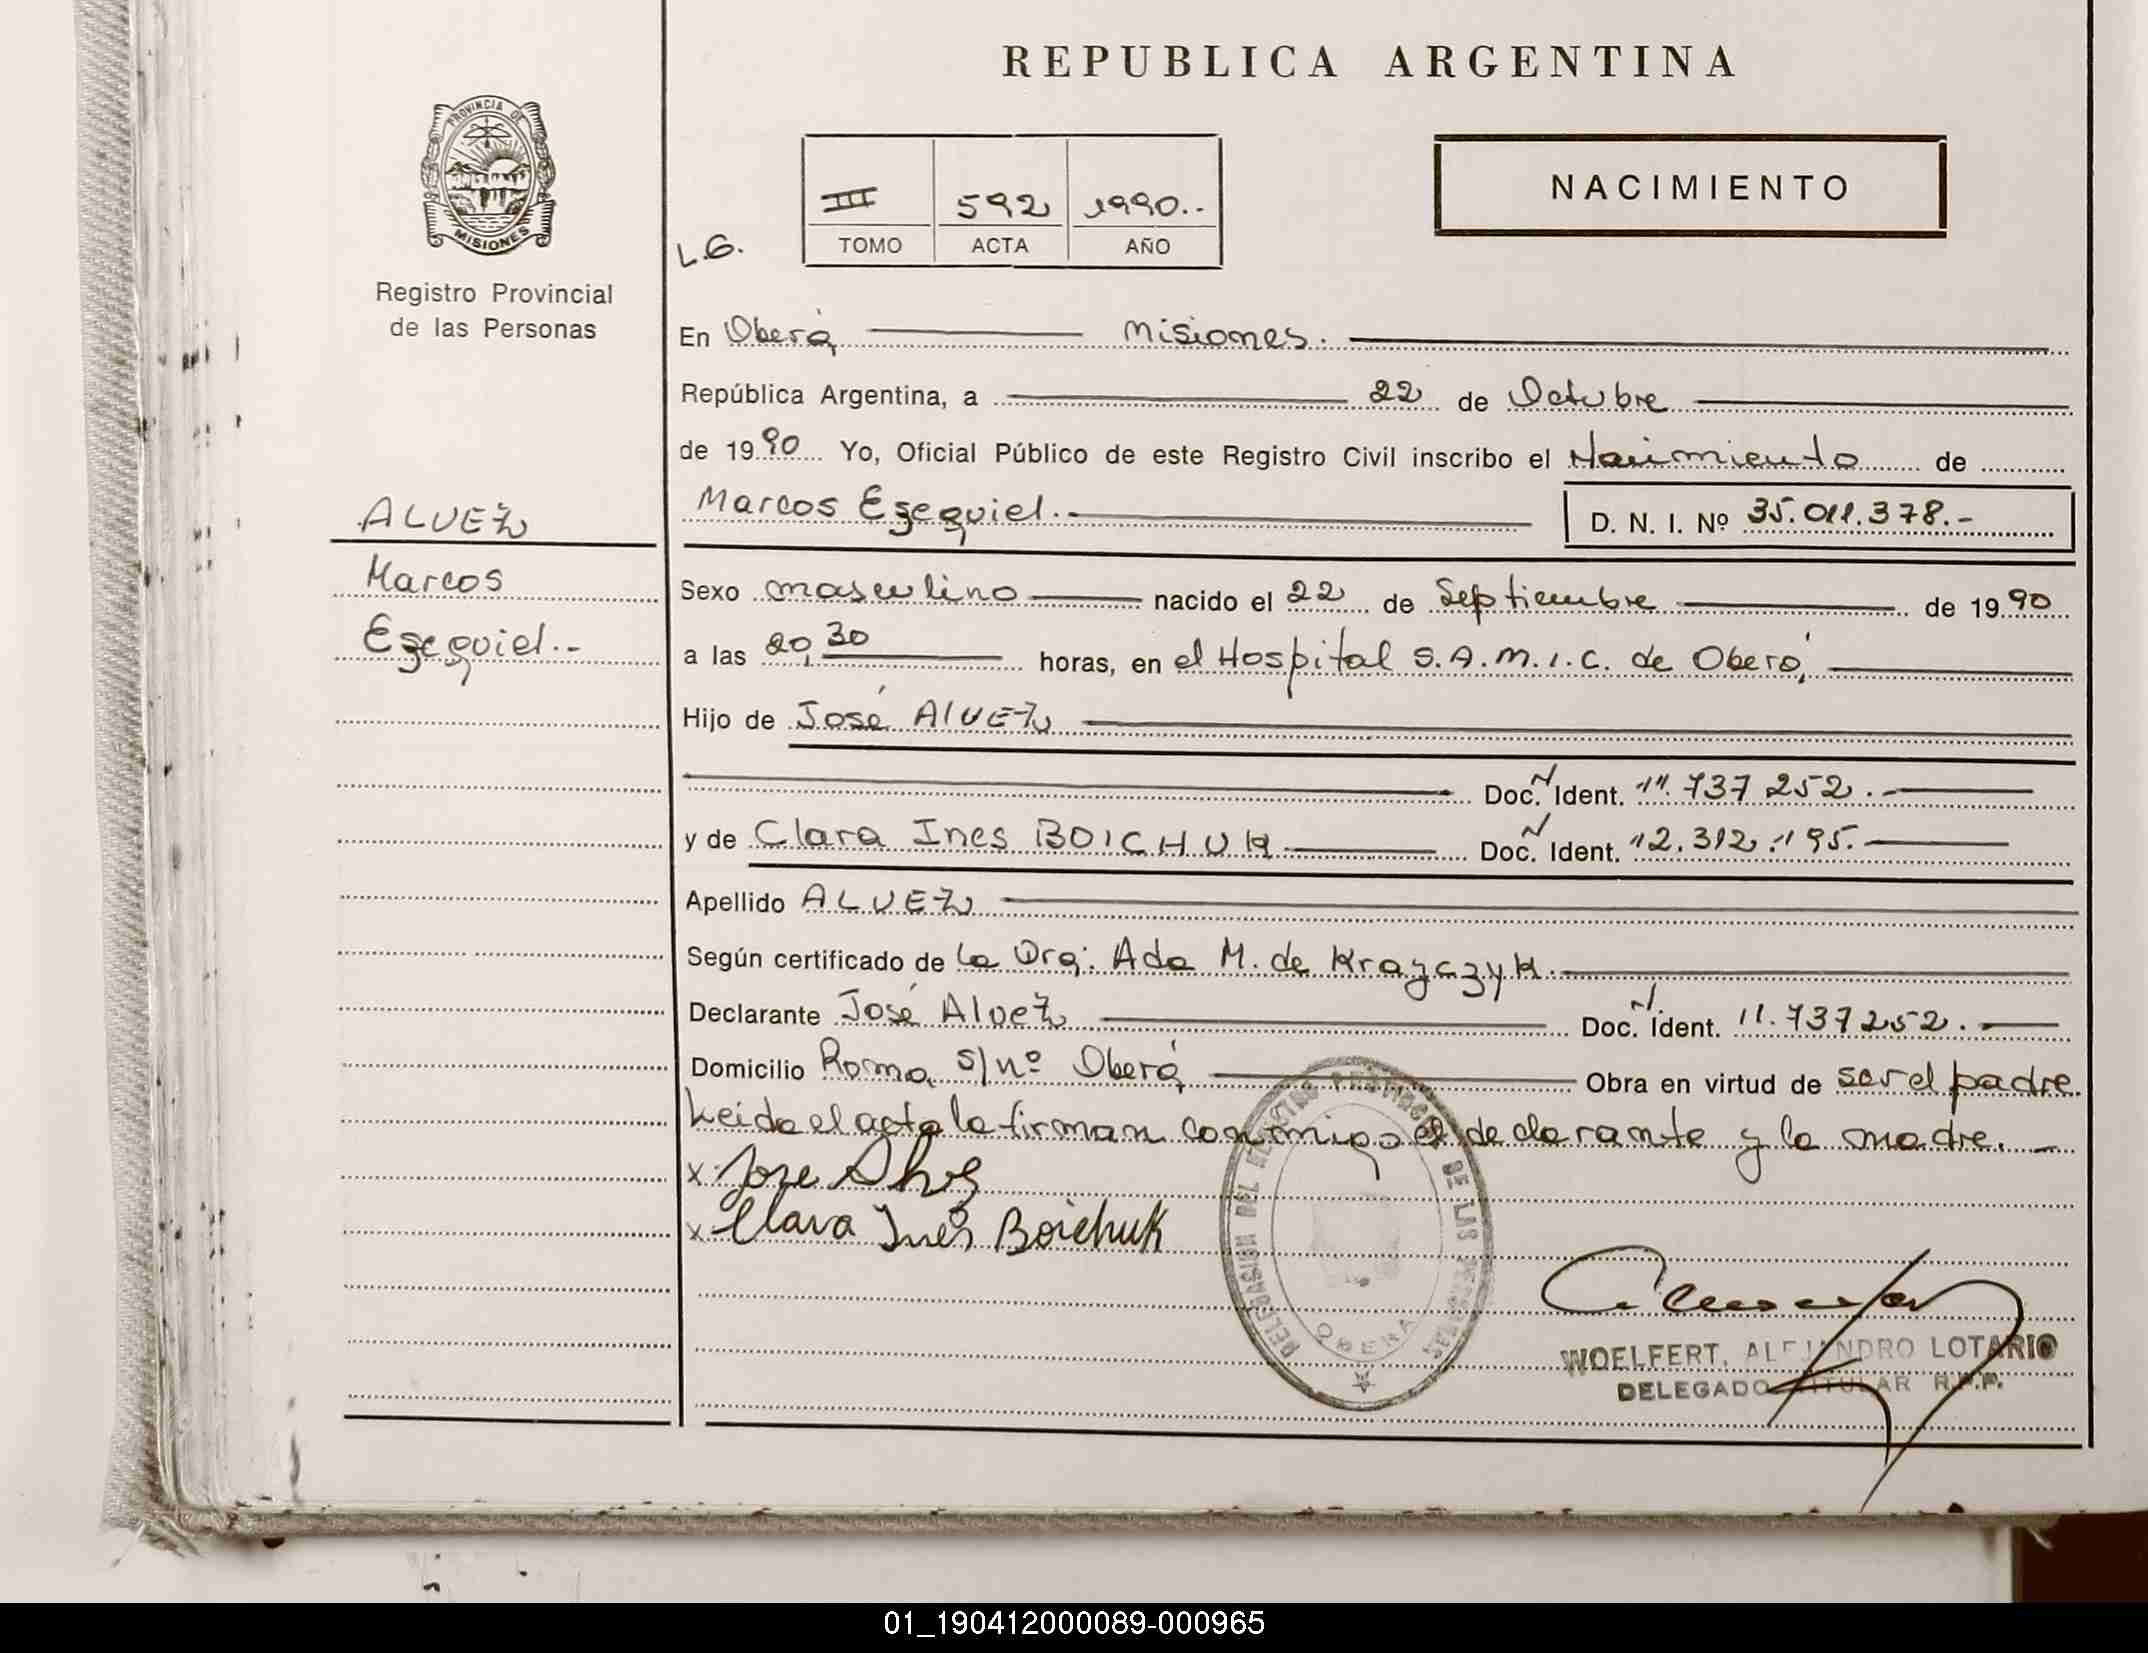 REPUBLICA ARGENTINA
PROVINCIA DE
MISIONES
Registro Provincial
de las Personas
III 592 1990..
TOMO ACTA AÑO
NACIMIENTO
L.G.
En Oberá Misiones.
República Argentina, a 22 de Octubre
de 1990 Yo, Oficial Público de este Registro Civil inscribo el Nacimiento de
Marcos Ezequiel.- D. N. I. Nº 35.011.378.-
ALVEZ
Marcos
Ezequiel.-
Sexo masculino nacido el 22 de Septiembre de 1990
a las 20,30 horas, en el Hospital S.A.M.I.C. de Oberá,
Hijo de José AlVEZ
Doc. N Ident. 11.737 252.-
y de Clara Ines BOICHUK Doc. N Ident. 12.312.195.-
Apellido ALVEZ
Según certificado de la Dra: Ada M. de Krayczyk.
Declarante José Alvez Doc. N. Ident. 11.737252.-
Domicilio Roma s/nº Oberá, Obra en virtud de ser el padre.
Leida el acta la firman conmigo el declarante y la madre.-
x Jose Alvez
x Clara Inés Boichuk
DELEGASION DEL REGISTRO PROVINCIAL DE LAS PERSONAS
OBERA
WOELFERT, ALEJANDRO LOTARIO
DELEGADO TITULAR R.P.P.
01_190412000089-000965